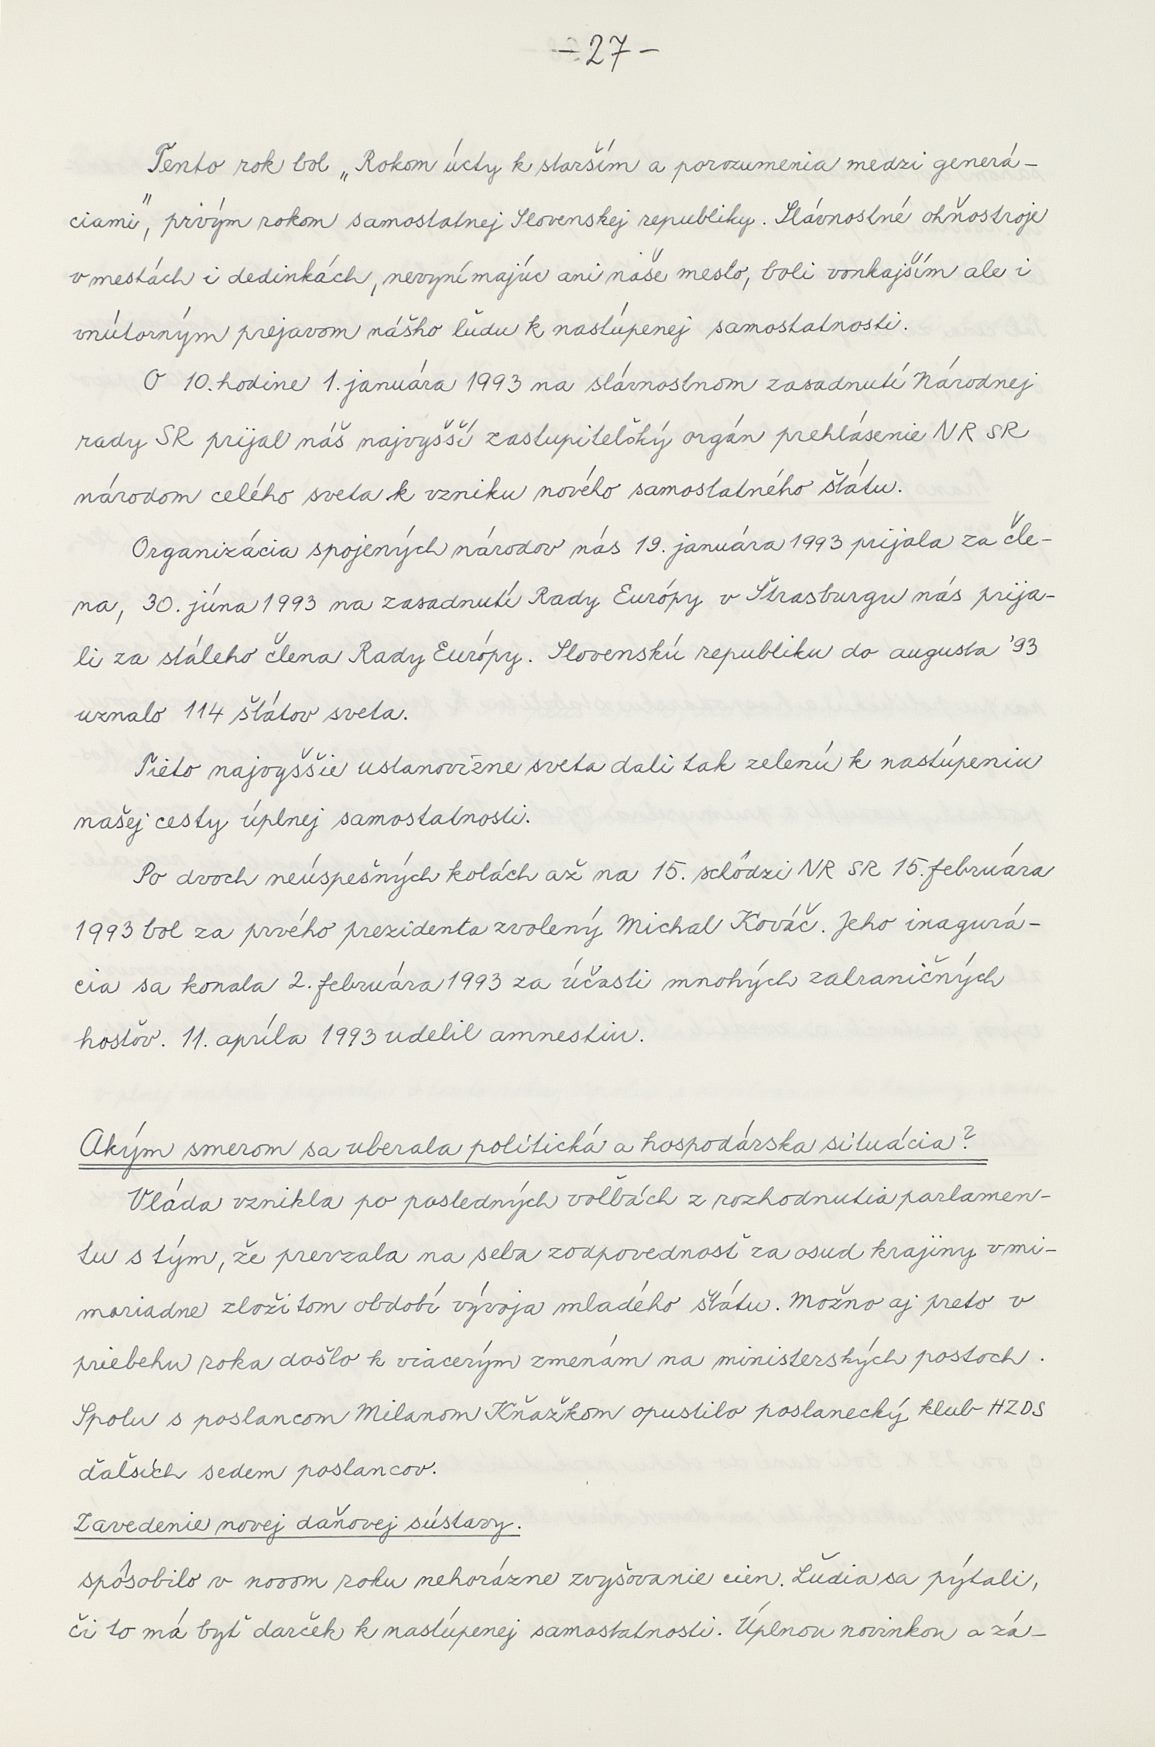 - 27 -
Tento rok bol „Rokom úcty k starším a porozumenia medzi generá-
ciami", prvým rokom samostatnej Slovenskej republiky. Slávnostné ohňostroje
v mestách i dedinkách, nevynímajúc ani naše mesto, boli vonkajším ale i
vnútorným prejavom nášho ľudu k nastúpenej samostatnosti.
O 10. hodine 1. januára 1993 na slávnostnom zasadnutí Národnej
rady SR prijal náš najvyšší zastupiteľský orgán prehlásenie NR SR
národom celého sveta k vzniku nového samostatného štátu.
Organizácia spojených národov nás 19. januára 1993 prijala za čle-
na, 30. júna 1993 na zasadnutí Rady Európy v Štrasburgu nás prija-
li za stáleho člena Rady Európy. Slovenskú republiku do augusta '93
uznalo 114 štátov sveta.
Tieto najvyššie ustanovizne sveta dali tak zelenú k nastúpeniu
našej cesty úplnej samostatnosti.
Po dvoch neúspešných kolách až na 15. schôdzi NR SR 15. februára
1993 bol za prvého prezidenta zvolený Michal Kováč. Jeho inagurá-
cia sa konala 2. februára 1993 za účasti mnohých zahraničných
hosťov. 11. apríla 1993 udelil amnestiu.
Akým smerom sa uberala politická a hospodárska situácia?
Vláda vznikla po posledných voľbách z rozhodnutia parlamen-
tu s tým, že prevzala na seba zodpovednosť za osud krajiny v mi-
moriadne zložitom období vývoja mladého štátu. Možno aj preto v
priebehu roka došlo k viacerým zmenám na ministerských postoch.
Spolu s poslancom Milanom Kňažkom opustilo poslanecký klub HZDS
ďalších sedem poslancov.
Zavedenie novej daňovej sústavy.
spôsobilo v novom roku nehorázne zvyšovanie cien. Ľudia sa pýtali,
či to má byť darček k nastúpenej samostatnosti. Úplnou novinkou a zá-